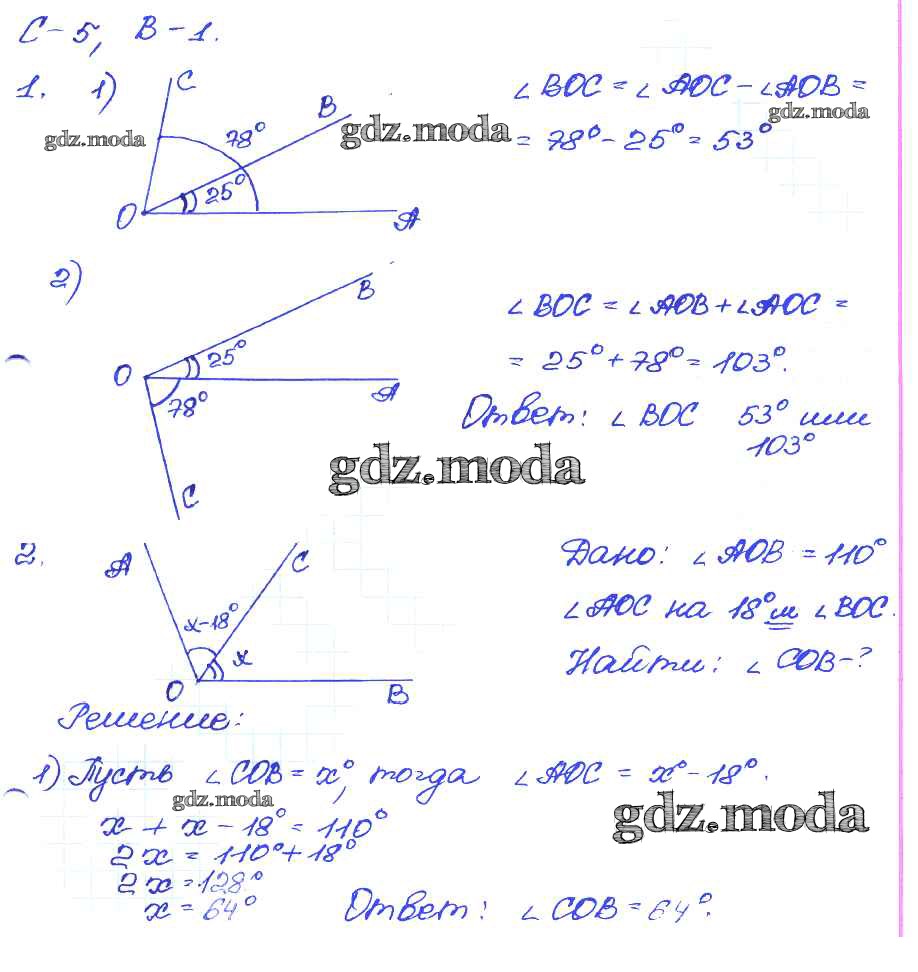 С-5, В-1.
1. 1)
C
B
78°
25°
O
A
∠BOC = ∠AOC - ∠AOB =
= 78° - 25° = 53°
gdz.moda
gdz.moda
gdz.moda
2)
B
O
25°
A
78°
C
∠BOC = ∠AOB + ∠AOC =
= 25° + 78° = 103°.
Ответ: ∠BOC 53° или
103°
gdz.moda
2.
A
C
x-18°
x
O
B
Дано: ∠AOB = 110°
∠AOC на 18° м ∠BOC.
Найти: ∠COB-?
Решение:
1) Пусть ∠COB = x°, тогда ∠AOC = x° - 18°.
gdz.moda
gdz.moda
x + x - 18° = 110°
2x = 110° + 18°
2x = 128°
x = 64°
Ответ: ∠COB = 64°.